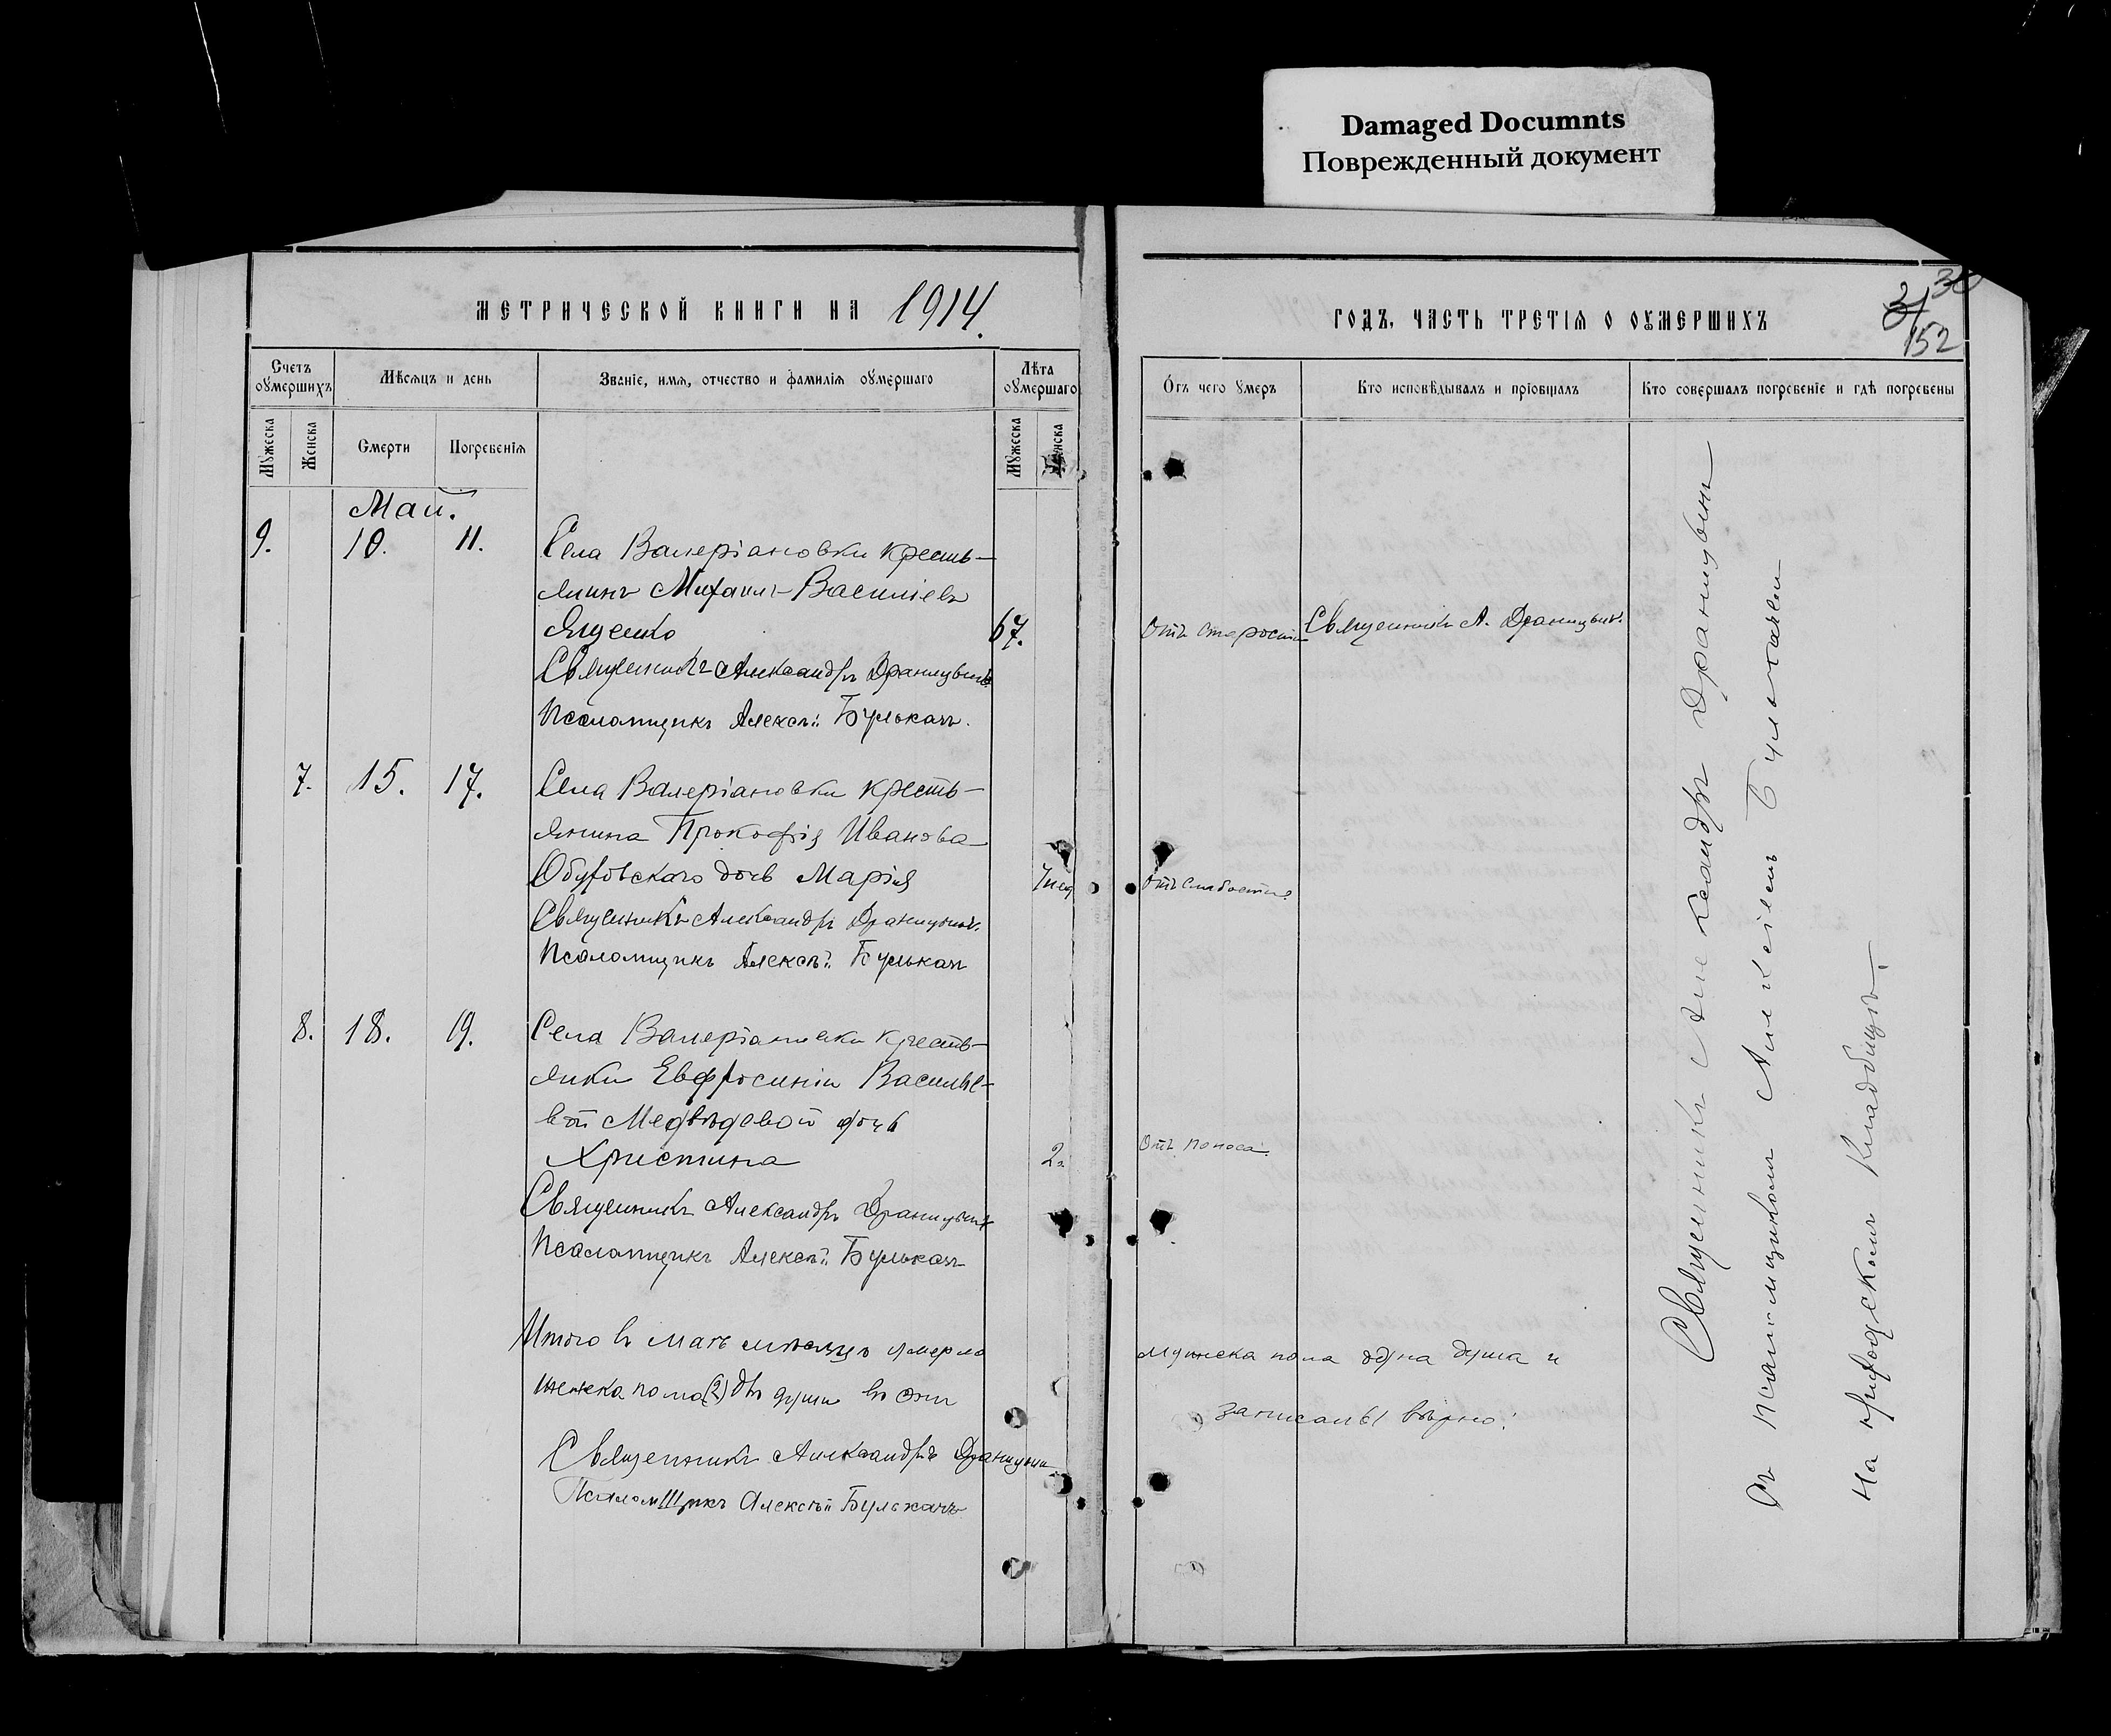 Damaged Documnts
Поврежденный документ
МЕТРИЧЕСКОЙ КНИГИ НА 1914.
ГОДЪ, ЧАСТЬ ТРЕТІЯ О ОУМЕРШИХЪ
31 30
152
Счетъ оумершихъ
Мѣсяцъ и день
Званіе, имя, отчество и фамилія оумершаго
Лѣта оумершаго
Отъ чего умеръ
Кто исповѣдывалъ и пріобщалъ
Кто совершалъ погребеніе и гдѣ погребены
Мужеска
Женска
Смерти
Погребенія
Мужеска
Женска
Май.
9. 10. 11. Села Валеріановки кресть-
янинъ Михаилъ Василіевъ
Яценко 67. Отъ старости Священникъ А. Драницынъ.
Священникъ Александръ Драницынъ.
Псаломщикъ Алексѣй Булькачъ.
7. 15. 17. Села Валеріановки кресть-
янина Прокофія Иванова
Обуховскаго дочь Марія 7 мѣс. Отъ слабости.
Священникъ Александръ Драницынъ.
Псаломщикъ Алексѣй Булькачъ
8. 18. 19. Села Валеріановки кресть-
янки Евфросиніи Василье-
вой Медвѣдевой дочь
Христина 2. Отъ поноса.
Священникъ Александръ Драницынъ
Псаломщикъ Алексѣй Булькачъ
Итого въ маѣ мѣсяцѣ умерло мужеска пола одна душа и
женска пола (2) двѣ души записаны вѣрно:
Священникъ Александръ Драницынъ
Псаломщикъ Алексѣй Булькачъ
Священникъ Александръ Драницынъ
Съ псаломщикомъ Алексѣемъ Булькачемъ
на приходскомъ кладбищѣ.